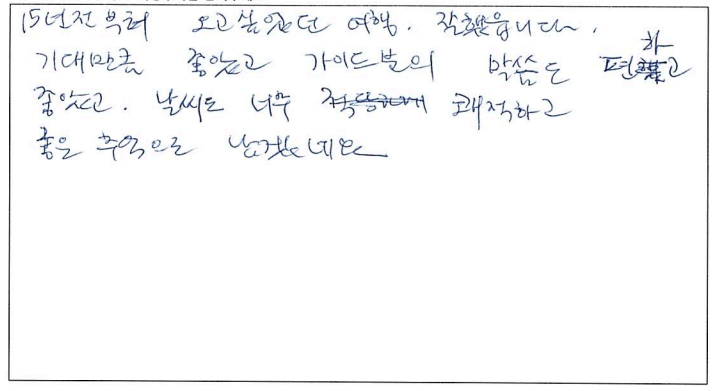 15년전부터 오고싶었던 여행. 잘했읍니다.
기대만큼 좋았고 가이드분의 말씀도 편하고
좋았고. 날씨도 너무 쾌적하고
좋은 추억으로 남겠네요